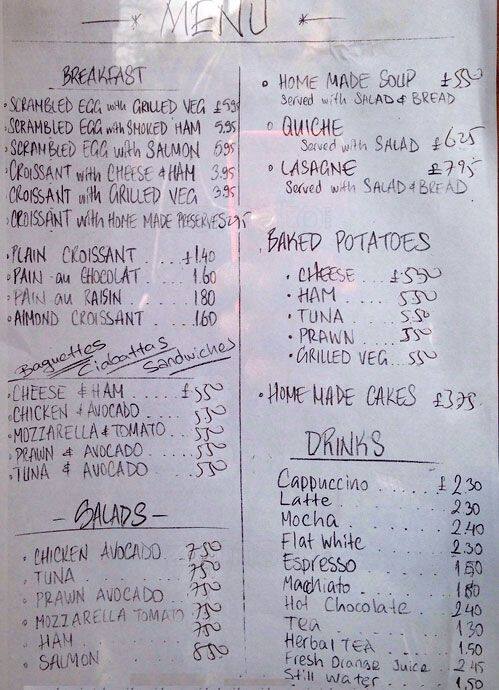 MENU
BREAKFAST
SCRAMBLED EGG with GRILLED VEG £5.95
SCRAMBLED EGG with SMOKED HAM 5.95
SCRAMBLED EGG with SALMON 5.95
CROISSANT with CHEESE & HAM 3.95
CROISSANT with GRILLED VEG 3.95
CROISSANT with HOME MADE PRESERVES 2.95
PLAIN CROISSANT .... £1.40
PAIN au CHOCOLAT .... 1.60
PAIN au RAISIN .... 1.80
ALMOND CROISSANT .... 1.60
Baguettes Ciabattas Sandwiches
CHEESE & HAM .... £5.50
CHICKEN & AVOCADO .... 5.50
MOZZARELLA & TOMATO .... 5.50
PRAWN & AVOCADO .... 5.50
TUNA & AVOCADO .... 5.50
- SALADS -
CHICKEN AVOCADO .... 7.50
TUNA .... 7.50
PRAWN AVOCADO .... 7.50
MOZZARELLA TOMATO 7.50
HAM .... 7.50
SALMON 8.50
HOME MADE SOUP £5.50
Served with SALAD & BREAD
QUICHE
Served with SALAD £6.25
LASAGNE £7.95
Served with SALAD & BREAD
BAKED POTATOES
CHEESE .... £5.50
HAM .... 5.50
TUNA .... 5.50
PRAWN .... 5.50
GRILLED VEG .... 5.50
HOME MADE CAKES £3.75
DRINKS
Cappuccino .... £2.30
Latte .... 2.30
Mocha .... 2.40
Flat White .... 2.30
Espresso .... 1.50
Machiato .... 1.80
Hot Chocolate .... 2.40
Tea .... 1.30
Herbal TEA .... 1.50
Fresh Orange Juice .. 2.45
Still Water .... 1.50